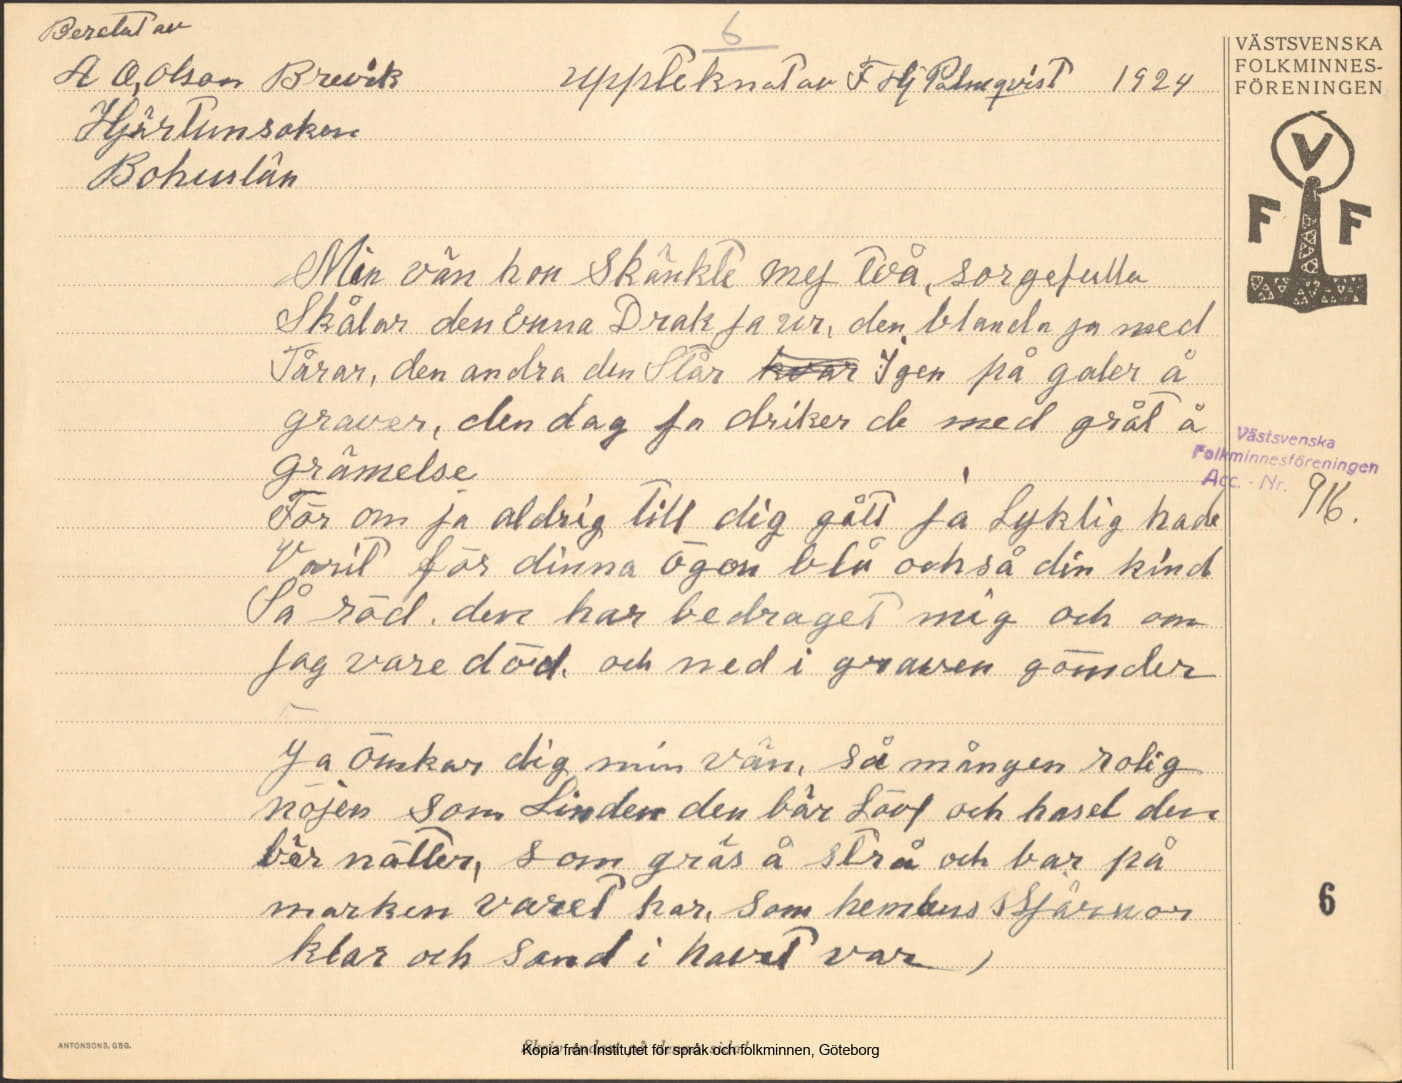 6
Berettat av
A O, Olson Brevik Uppteknat av F Hj Palmqvist 1924
Hjärtumsoken
Bohuslän
VÄSTSVENSKA
FOLKMINNES-
FÖRENINGEN
V
F F
Min vän hon Skänkte mej två, sorgefulla
Skålar den Enna Drak ja ur, den blanda ja med
Tårar, den andra den Står kvar Igen på galer å
graver, den dag ja driker de med gråt å
grämelse
För om ja aldrig till dig gått ja Lyklig hade
Varit för dinna ögon blå också din kind
Så röd. den har bedraget mig och om
jag vare död. och ned i graven gömder
Västsvenska
Folkminnesföreningen
Acc. - Nr. 916.
Ja Ömkar dig min vän, så mången rolig
nöjen som Linden den bär Löof och hasel den
bär nötter, som gräs å strå och bar på
marken varet har, som hemlens Stjärnor
klar och sand i havet var
6
ANTONSONS, GBG.
Kopia från Institutet för språk och folkminnen, Göteborg